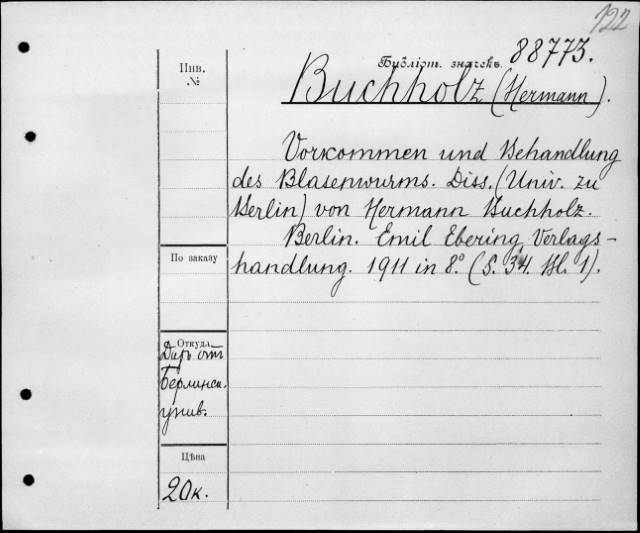 122
Библіот. значекъ. 88773.
Инв.
№
Buchholz (Hermann).
Vorkommen und Behandlung
des Blasenwurms. Diss. (Univ. zu
Berlin) von Hermann Buchholz.
Berlin. Emil Ebering, Verlags-
handlung. 1911 in 8.° (S. 34. Bl. 1).
По заказу
Откуда
Даръ отъ
Берлинск.
унив.
Цѣна
20к.